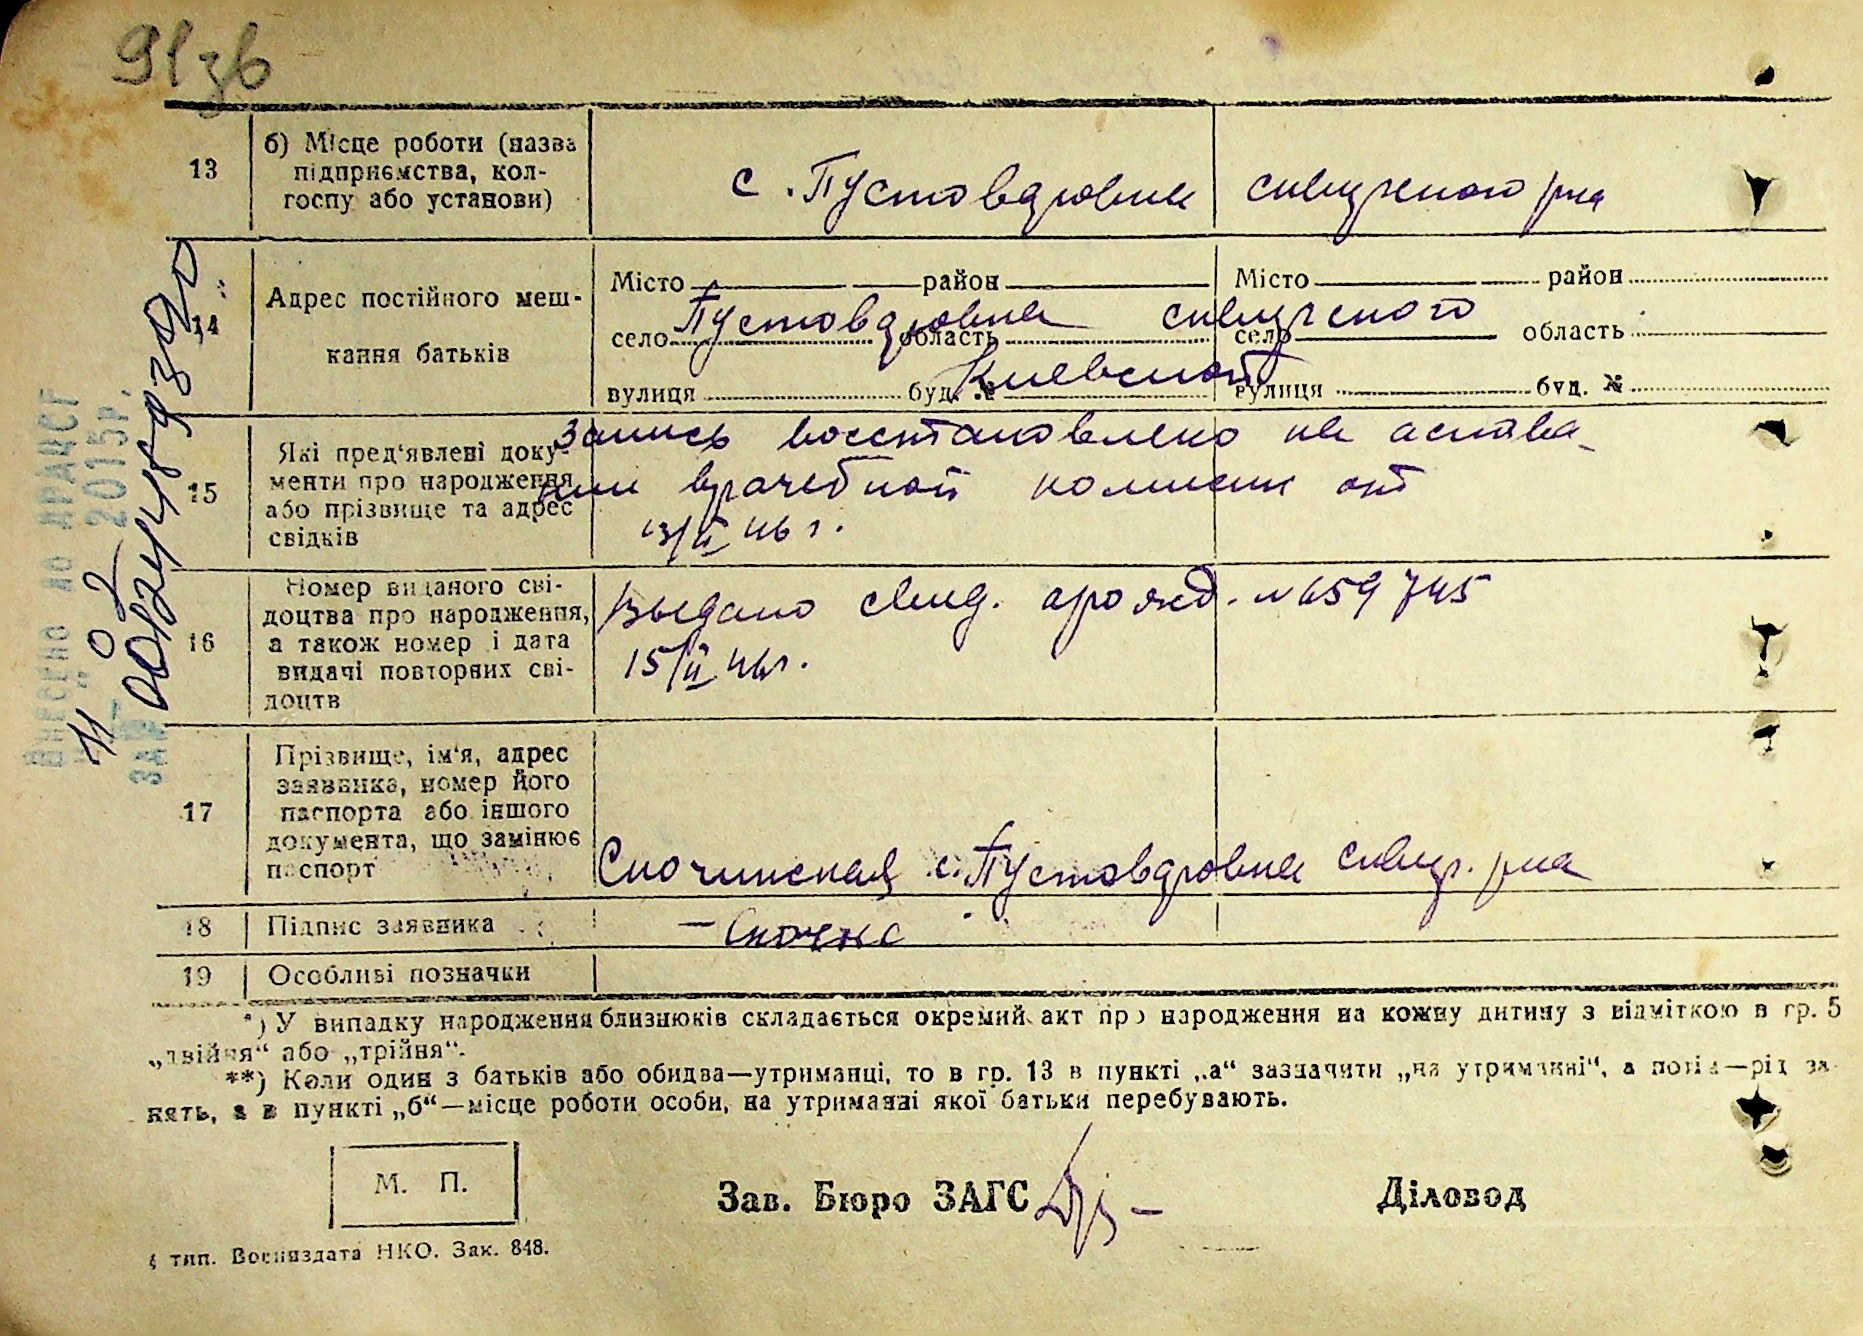 91зв
13 б) Місце роботи (назва підприємства, колгоспу або установи) с. Пустоваровка сквирского р-на
Місто район Місто район
14 Адрес постійного мешкання батьків
село Пустоваровка область сквирского село область
вулиця буд. № Киевской вулиця буд. №
15 Які пред'явлені документи про народження або прізвище та адрес свідків
Запись восстановлено на основании врачебной комисии акт
13/II 46 г.
16 Номер виданого свідоцтва про народження, а також номер і дата видачі повторних свідоцтв
Выдано свид. о рожд. № 659745
15/II 46г.
17 Прізвище, ім'я, адрес заявника, номер його паспорта або іншого документа, що замінює паспорт
с. Пустоваровка сквир. р-на
18 Підпис заявника
19 Особливі позначки
*) У випадку народження близнюків складається окремий акт про народження на кожну дитину з відміткою в гр. 5
„двійня“ або „трійня“.
**) Коли один з батьків або обидва—утриманці, то в гр. 13 в пункті „а“ зазначити „на утриманні“, а потім—рід за-
нять, а в пункті „б“—місце роботи особи, на утриманні якої батьки перебувають.
М. П.
Зав. Бюро ЗАГС Діловод
тип. Воениздата НКО. Зак. 848.
Внесено до ДРАЦСГ
2015р.